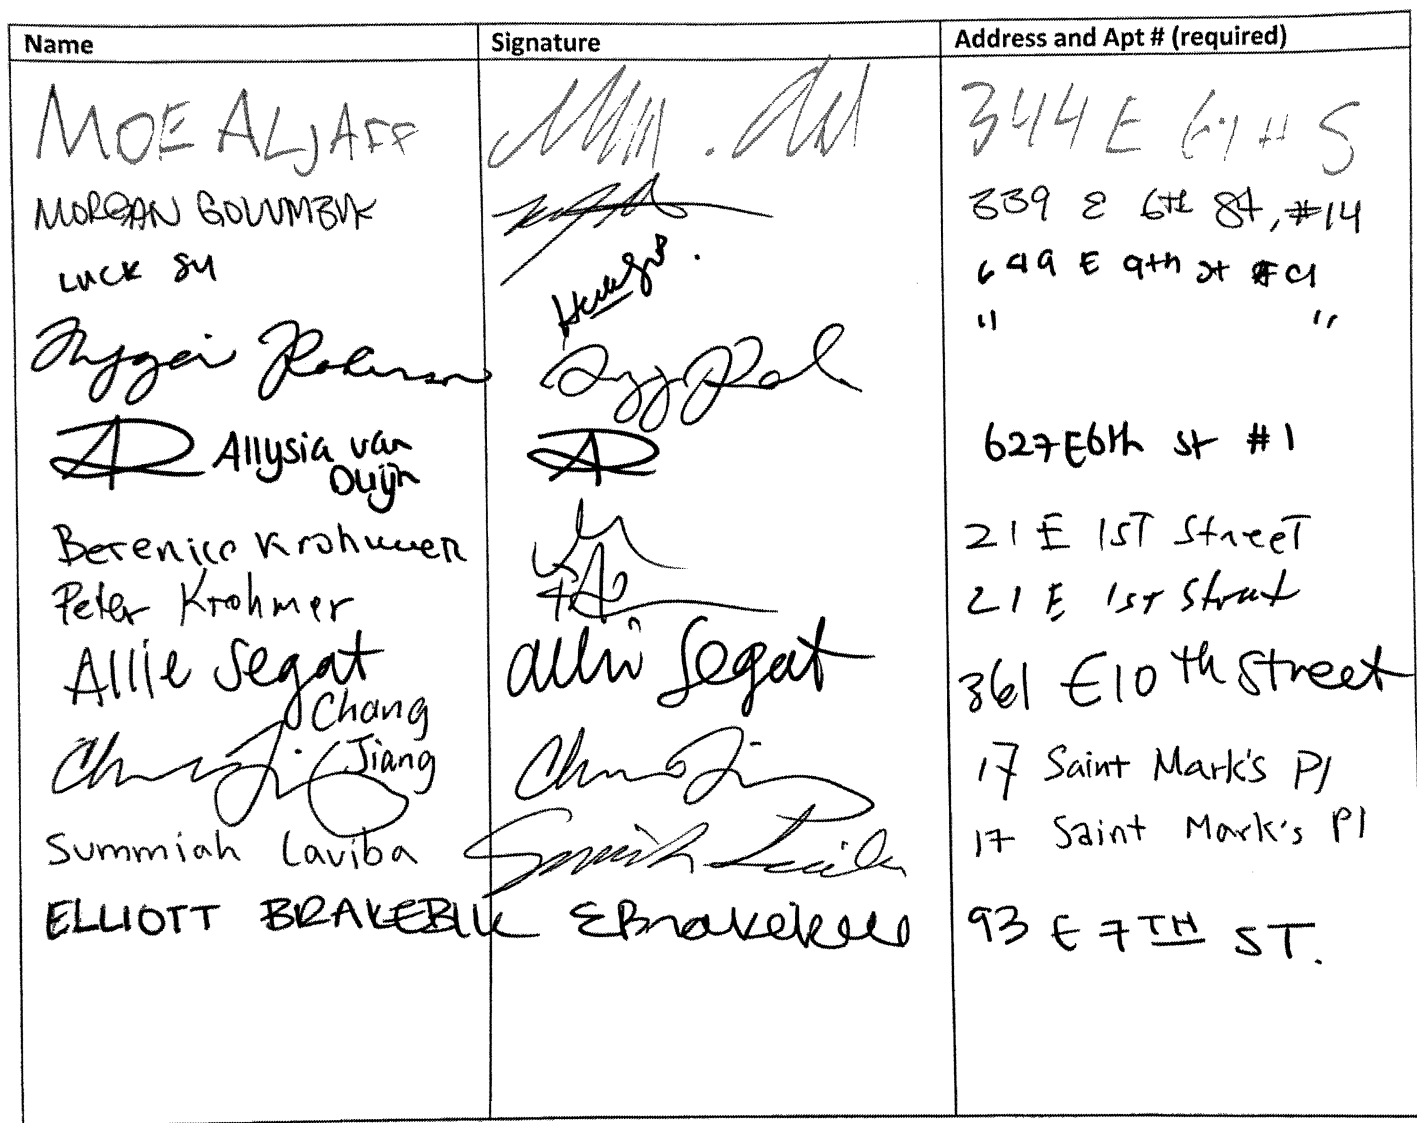 Name Signature Address and Apt # (required)
MOE ALJAFF 344 E 6TH S
MORGAN GOLUMBUK 339 E 6th St, #14
LUCK SU 649 E 9th st #C1
" "
Robinson
AD Allysia van AD 627 E 6th St #1
Duijn
Berenice Krohmer 21 E 1ST StreeT
Peter Krohmer 21 E 1st Street
Allie Segat Allie Segat 361 E 10th Street
Chang
Jiang 17 Saint Mark's Pl
Summiah Laviba 17 Saint Mark's Pl
ELLIOTT BRAKEBUK EBrakebuk 93 E 7TH ST.